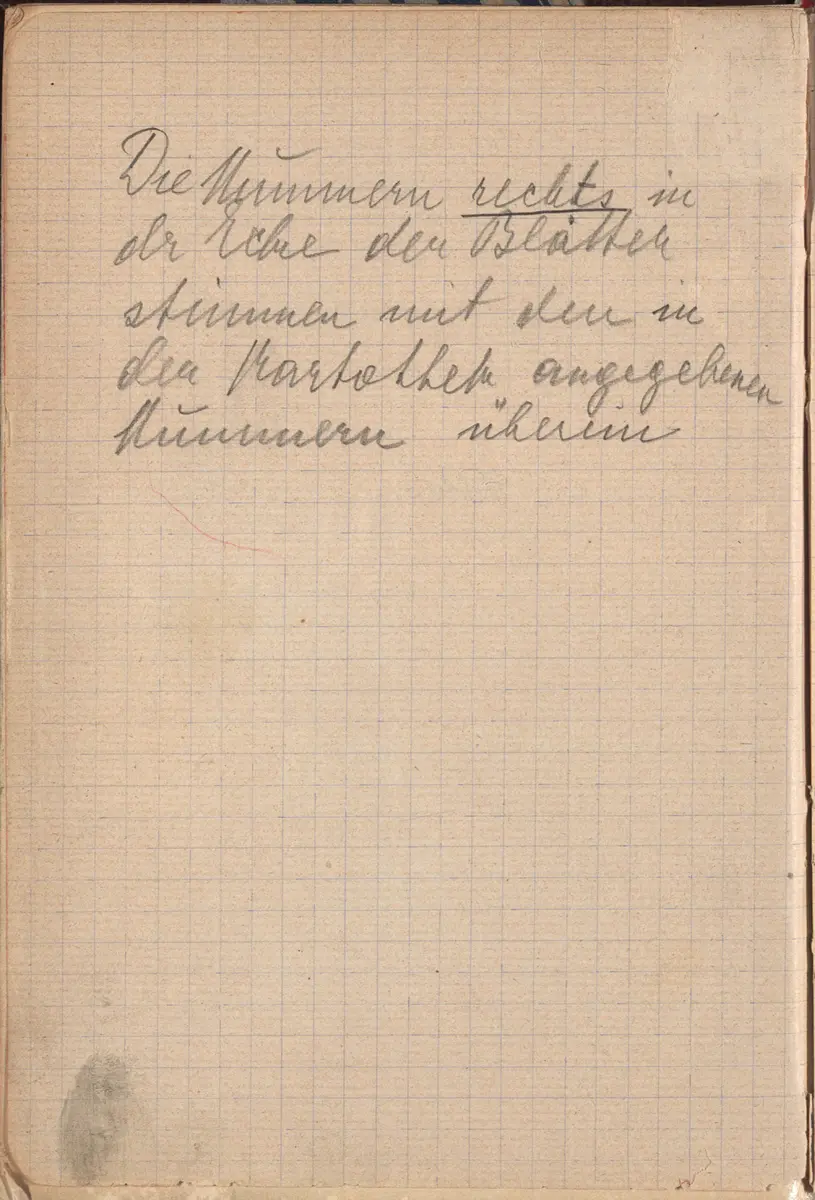 Die Nummern rechts in
dr Ecke der Blätter
stimmen mit den in
der Kartothek angegebenen
Nummern überein